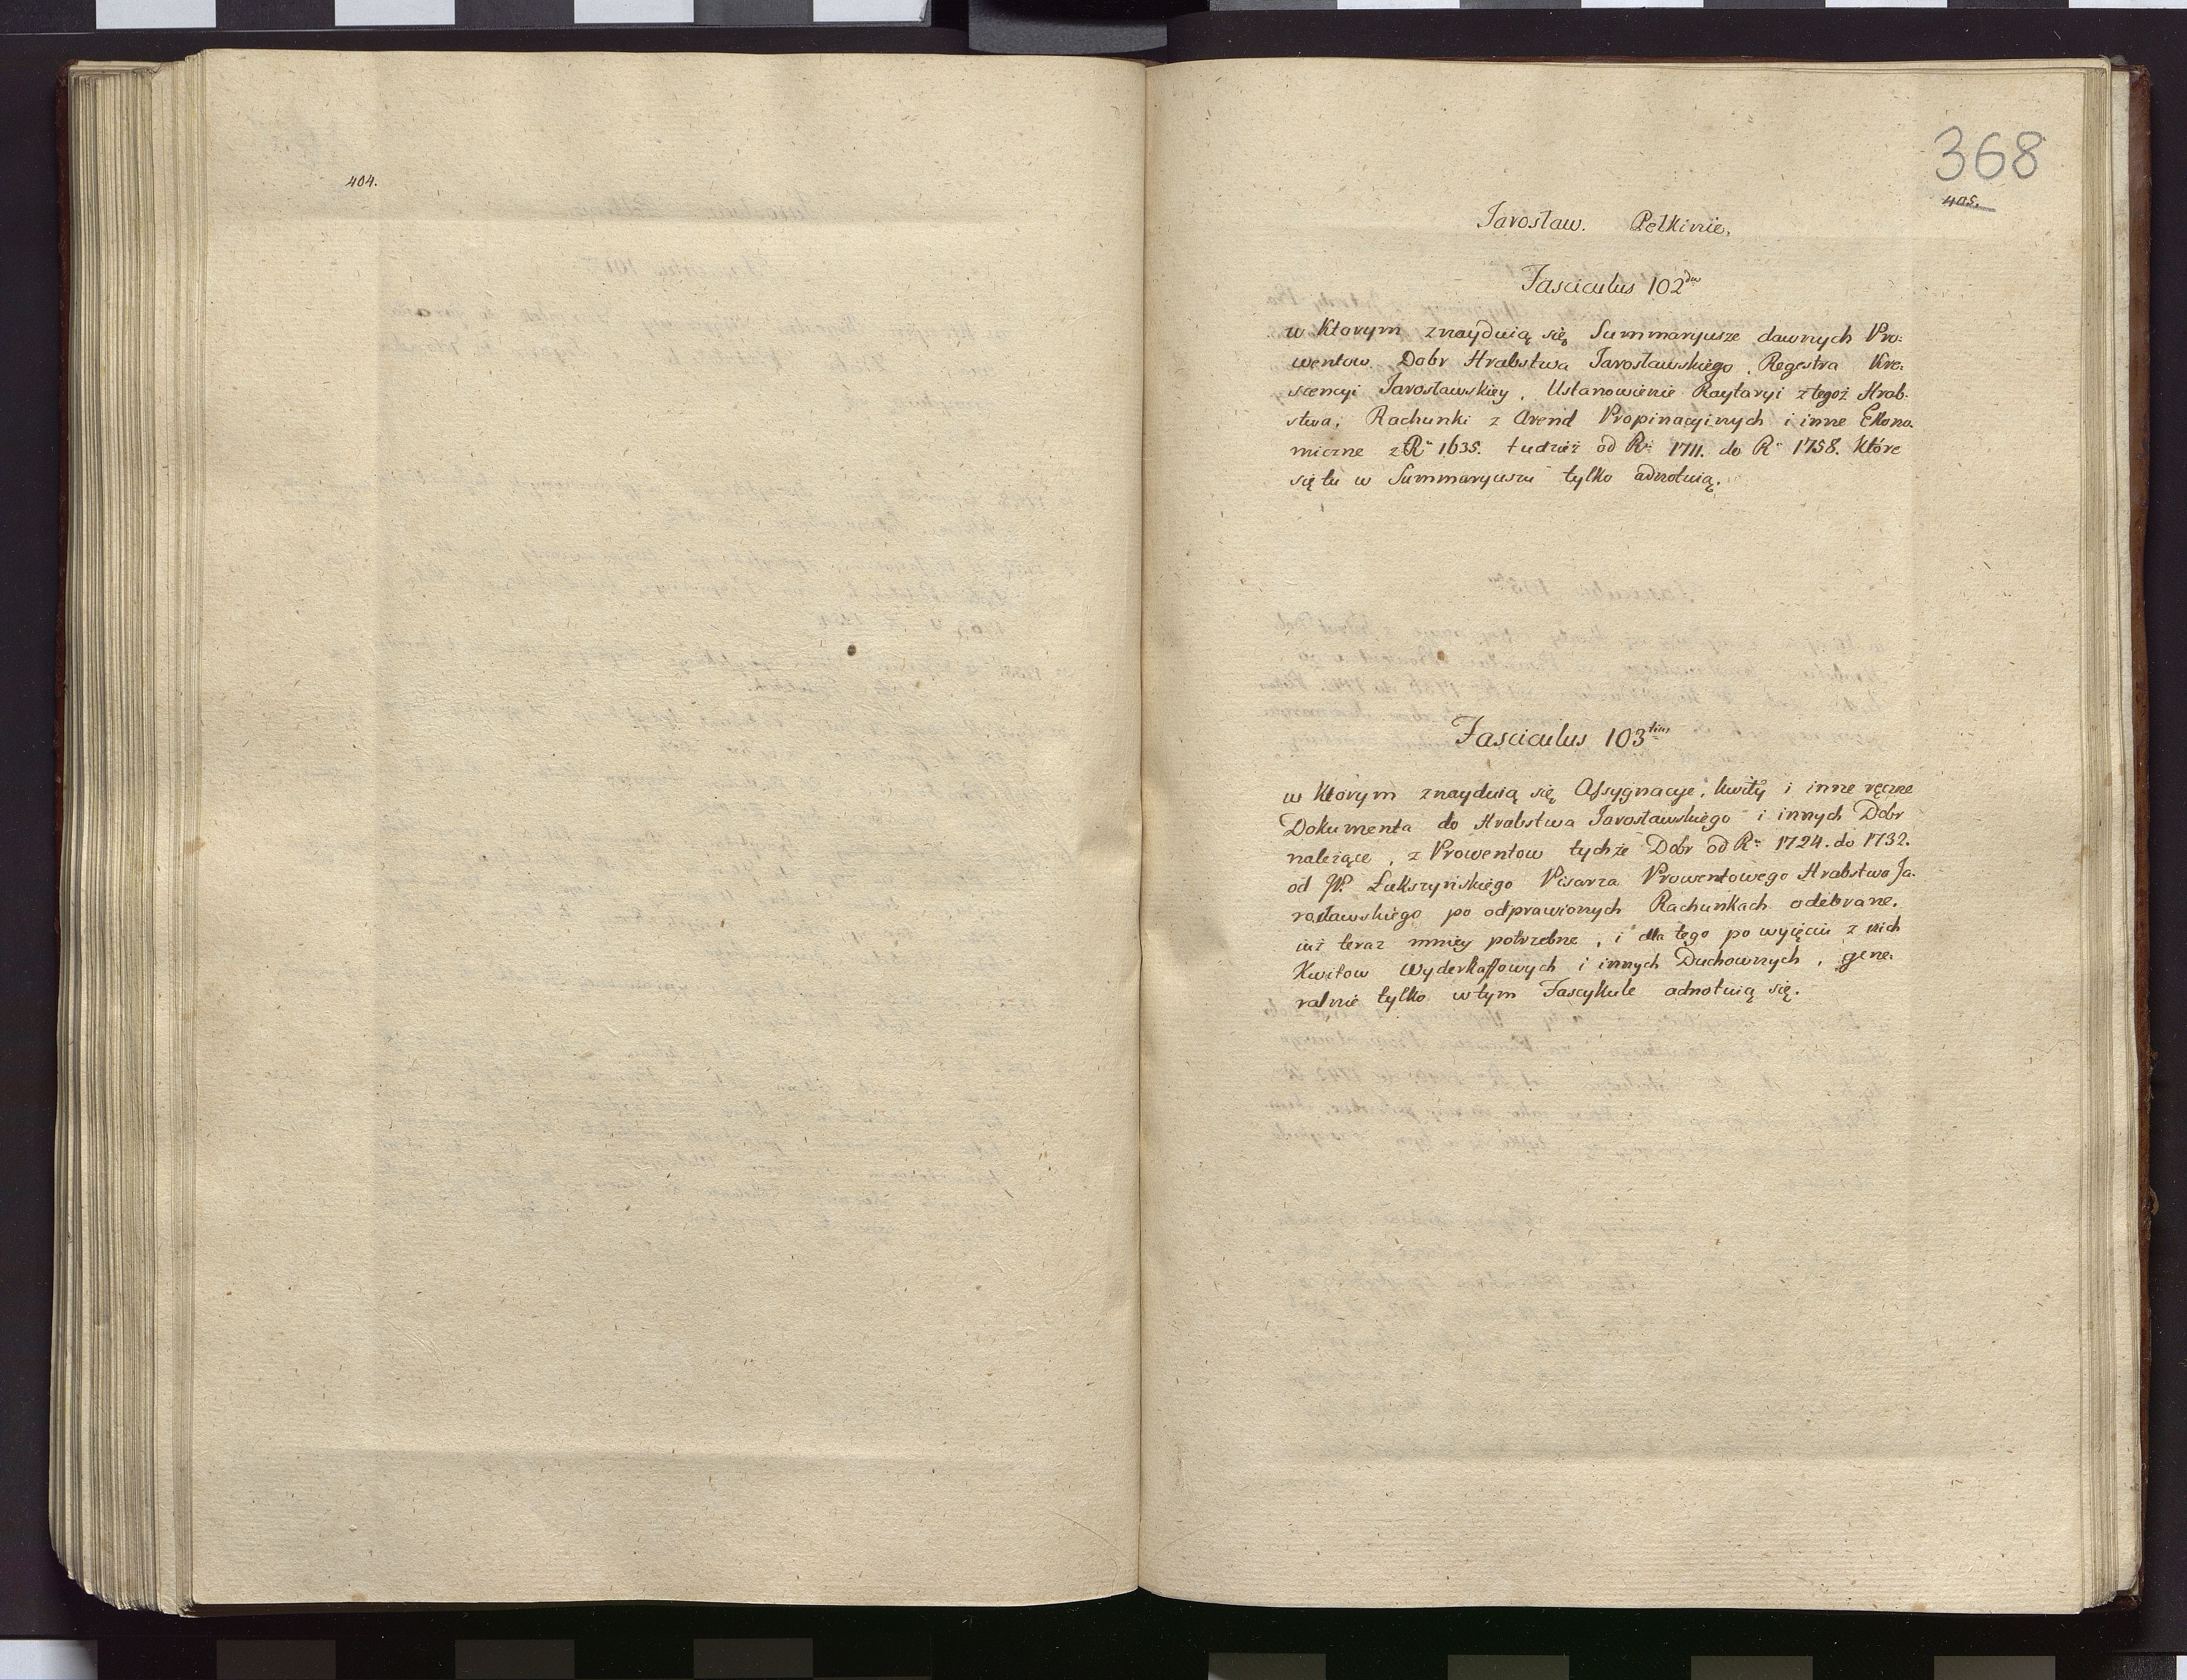 404.
368
405.
Jarosław. Pełkinie.
Fasciculus 102dus
w Ktorym znayduią się Summaryusze dawnych Pro:
wentow Dobr Hrabstwa Jarosławskiego, Regestra Kre:
scencyi Jarosławskiey, Ustanowienie Raytaryi z tegoż Hrab:
stwa, Rachunki z Arend Propinacyinych i inne Ekono:
miczne z R: 1635. tudzież od R: 1711. do R: 1758. Które
się tu w Summaryuszu tylko adnotuią.
Fasciculus 103tius
w Ktorym znayduią się Assygnacye, Kwity i inne ręczne
Dokumenta do Hrabstwa Jarosławskiego i innych Dobr
należące, z Prowentow tychże Dobr od R: 1724. do 1732.
od JP. Łukszyńskiego Pisarza Prowentowego Hrabstwa Ja:
rosławskiego po odprawionych Rachunkach odebrane.
iuż teraz mniey potrzebne, i dla tego po wyięciu z nich
Kwitow Wyderkaffowych i innych Duchownych, gene:
ralnie tylko w tym Fascykule adnotuią się.